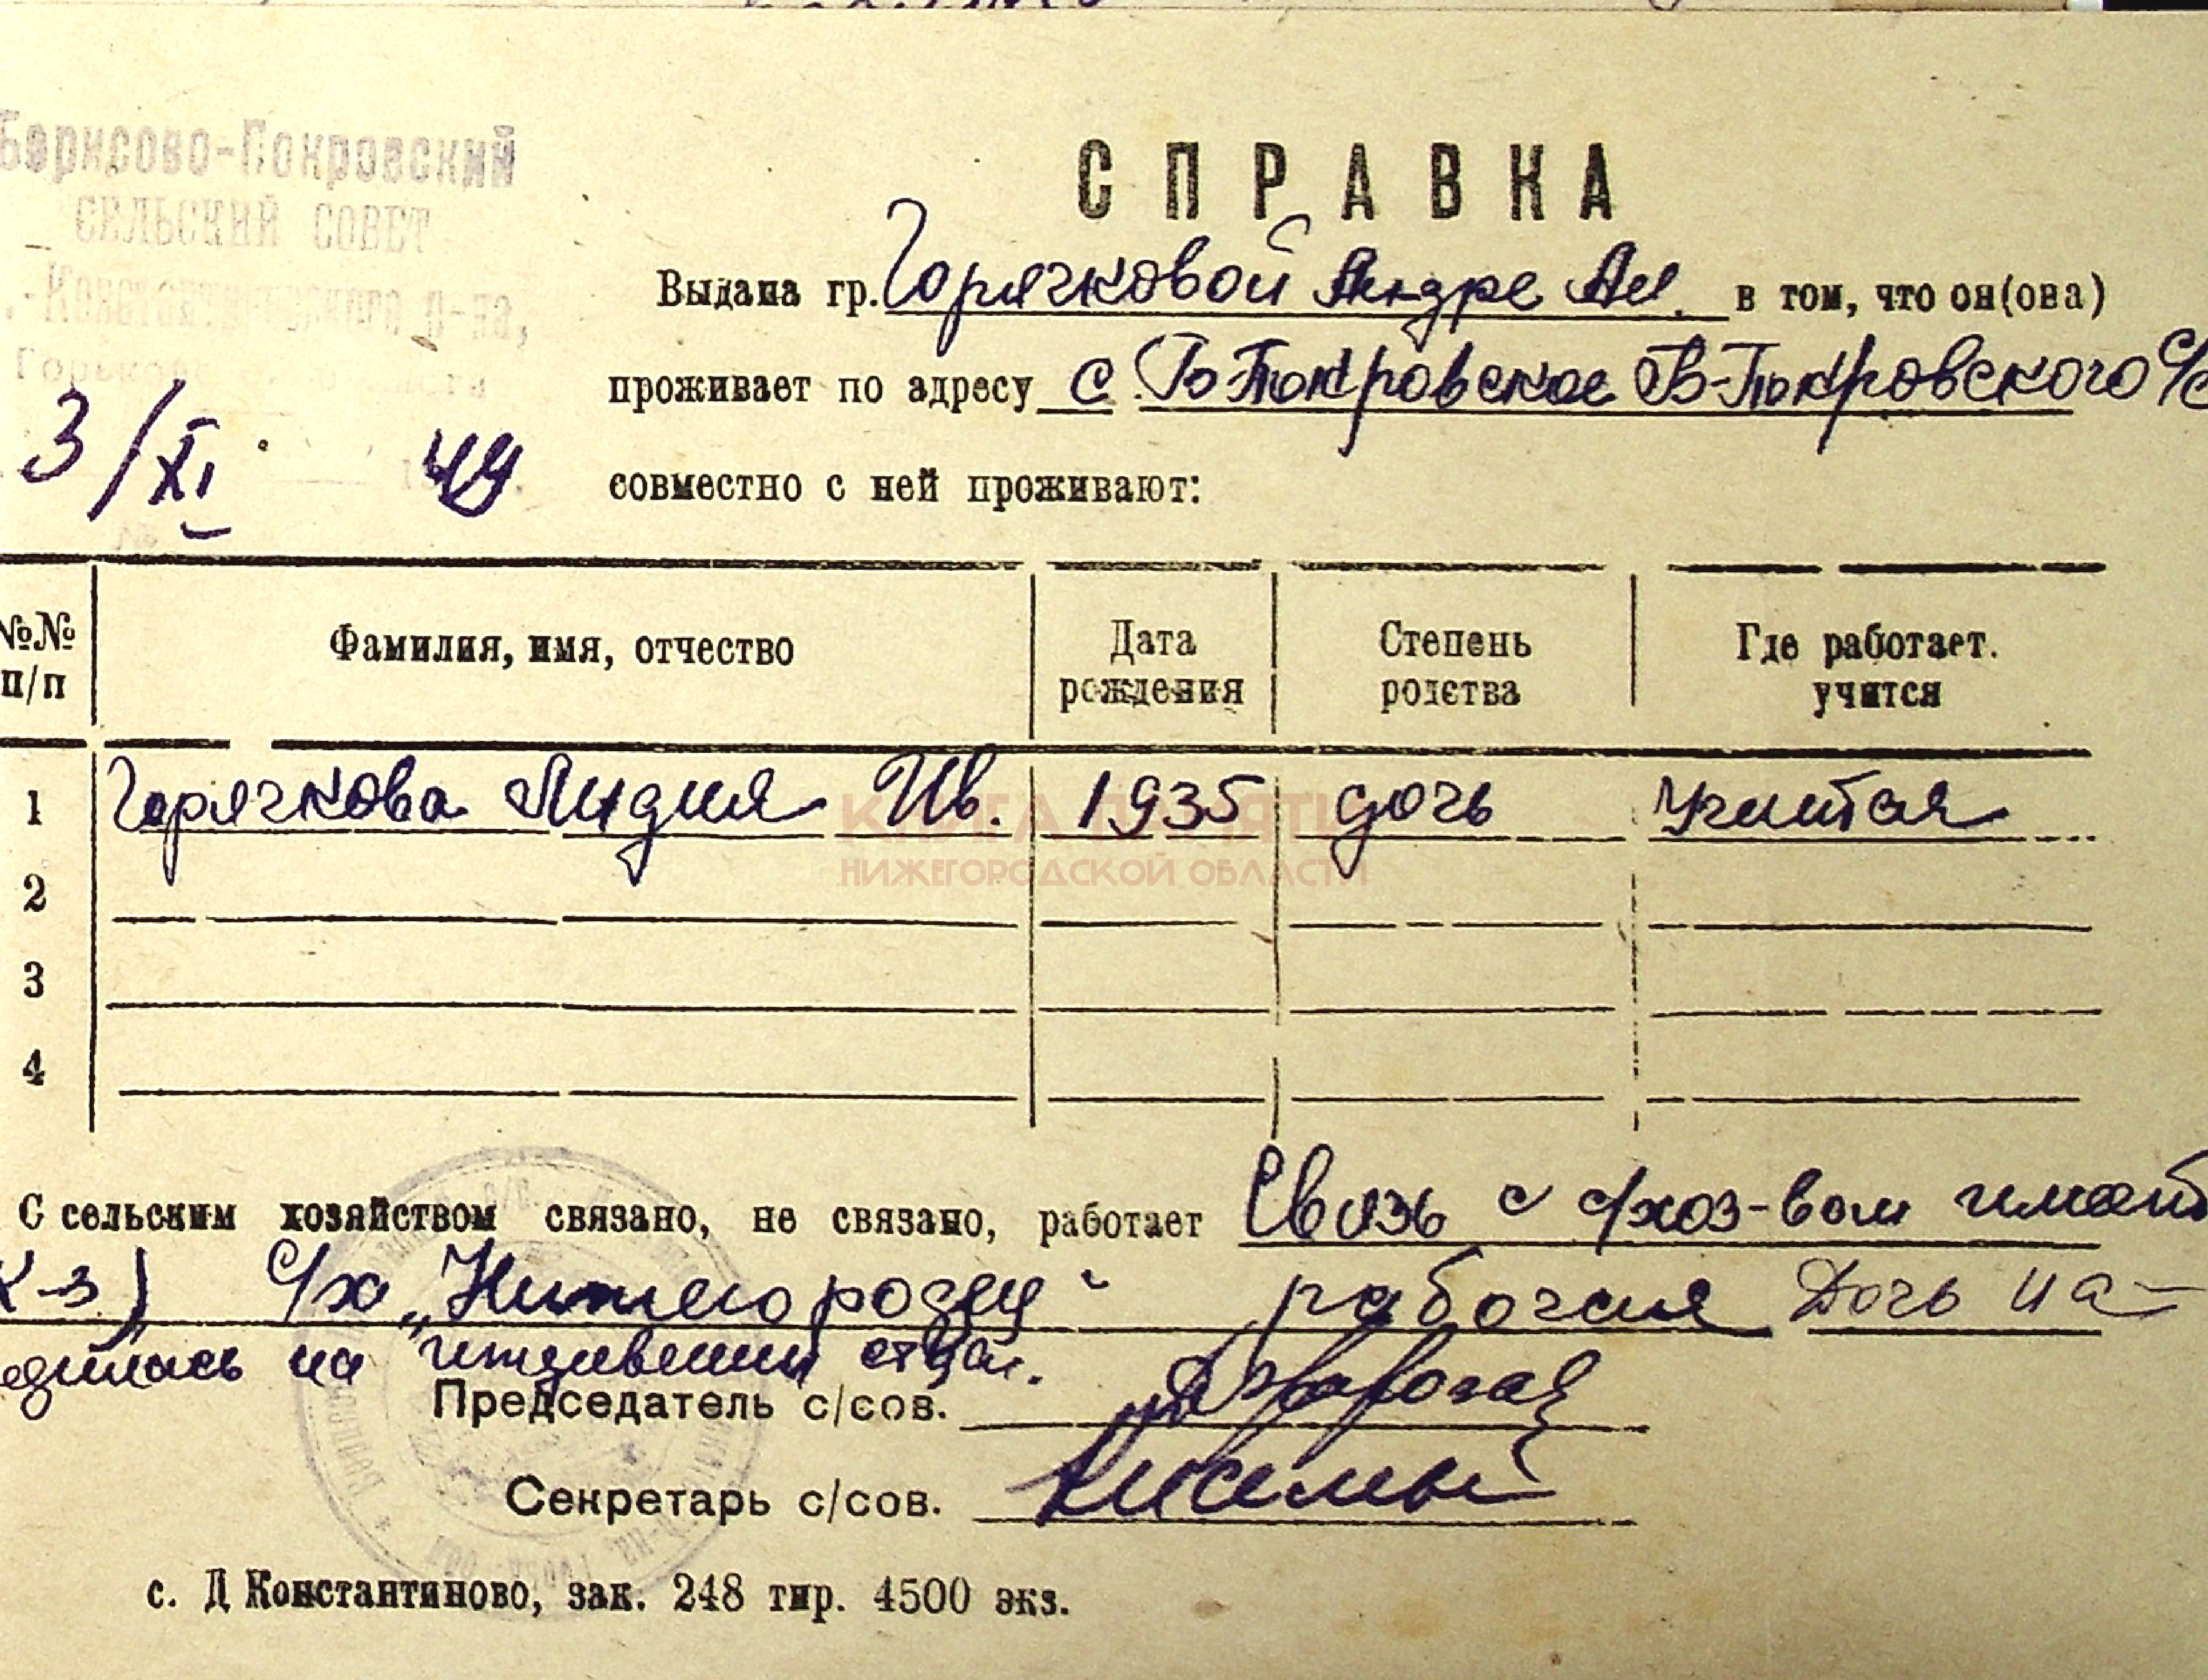 Борисово-Покровский
СЕЛЬСКИЙ СОВЕТ
.-Константиновского р-на,
3/XI 49
СПРАВКА
Выдана гр. Горячковой Ан. в том, что он(она)
проживает по адресу с. Б-Покровское Б-Покровского с/с
совместно с ней проживают:
№№ п/п Фамилия, имя, отчество Дата рождения Степень родства Где работает. учится
1 Горячкова Лидия Ив. 1935 дочь учится
2
3
4
КНИГА ПАМЯТИ
НИЖЕГОРОДСКОЙ ОБЛАСТИ
С сельским хозяйством связано, не связано, работает Связь с с/хоз-вом имеет
к-з) с/х „Нижегородец“ рабочая Дочь на-
одилась на иждивении
Председатель с/сов.
Секретарь с/сов.
с. Д Константиново, зак. 248 тир. 4500 экз.